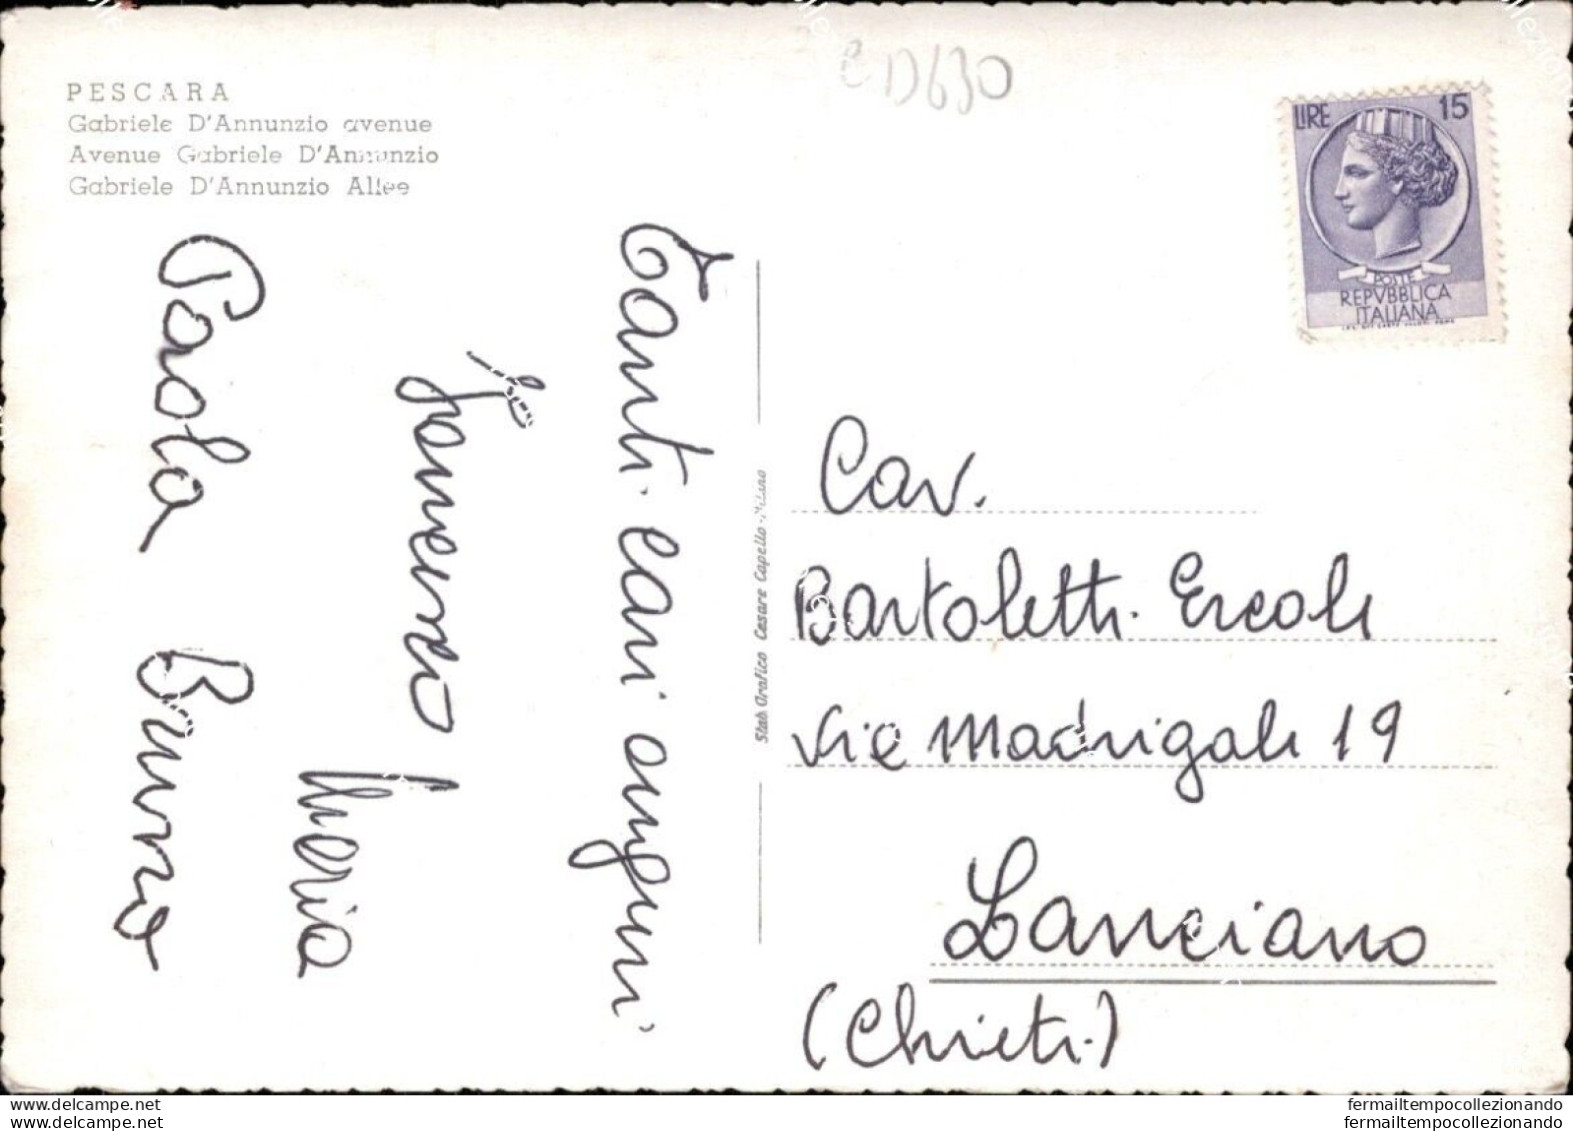 PESCARA
Gabriele D'Annunzio avenue
Avenue Gabriele D'Annunzio
Gabriele D'Annunzio Allee
CD630
LIRE 15
POSTE
REPVBBLICA
ITALIANA
Tanti cari auguri
Maria
Paola Bruno
Stab Grafico Cesare Capello - Milano
Cav.
Bartoletti Ercole
Via Madrigale 19
Lanciano
(Chieti)
fermailtempocollezionando
fermailtempocollezionando
fermailtempocollezionando
fermailtempocollezionando